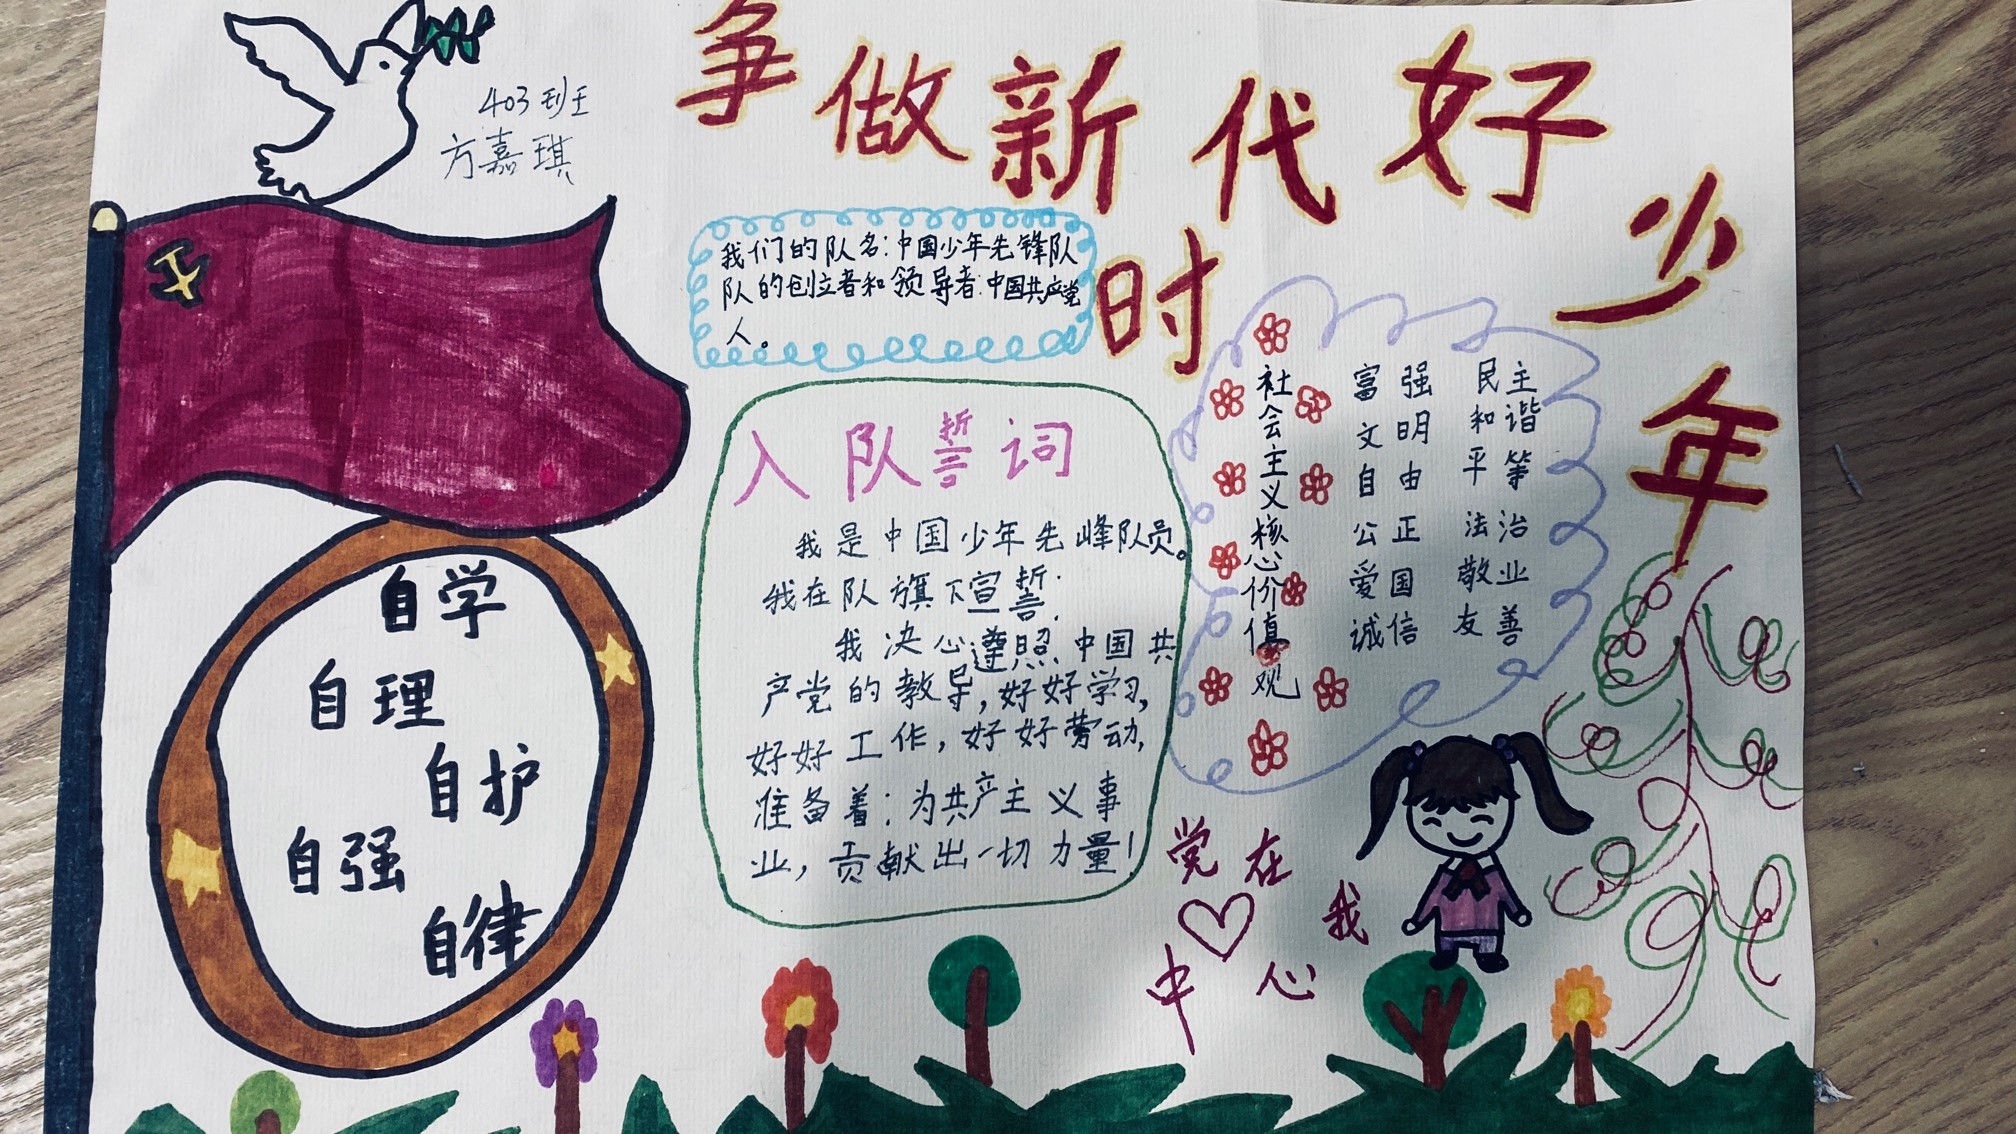 争做新时代好少年
403班
方嘉琪
我们的队名:中国少年先锋队
队的创立者和领导者:中国共产党
人。
入队誓词
我是中国少年先峰队员。
我在队旗下宣誓:
我决心遵照中国共
产党的教导,好好学习,
好好工作,好好劳动,
准备着:为共产主义事
业,贡献出一切力量!
社会主义核心价值观
富强 民主
文明 和谐
自由 平等
公正 法治
爱国 敬业
诚信 友善
自学
自理
自护
自强
自律
党在我
中心